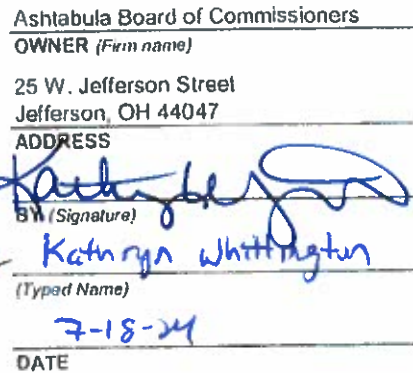 Ashtabula Board of Commissioners
OWNER (Firm name)
25 W. Jefferson Street
Jefferson, OH 44047
ADDRESS
BY (Signature)
Kathryn Whittington
(Typed Name)
7-18-24
DATE